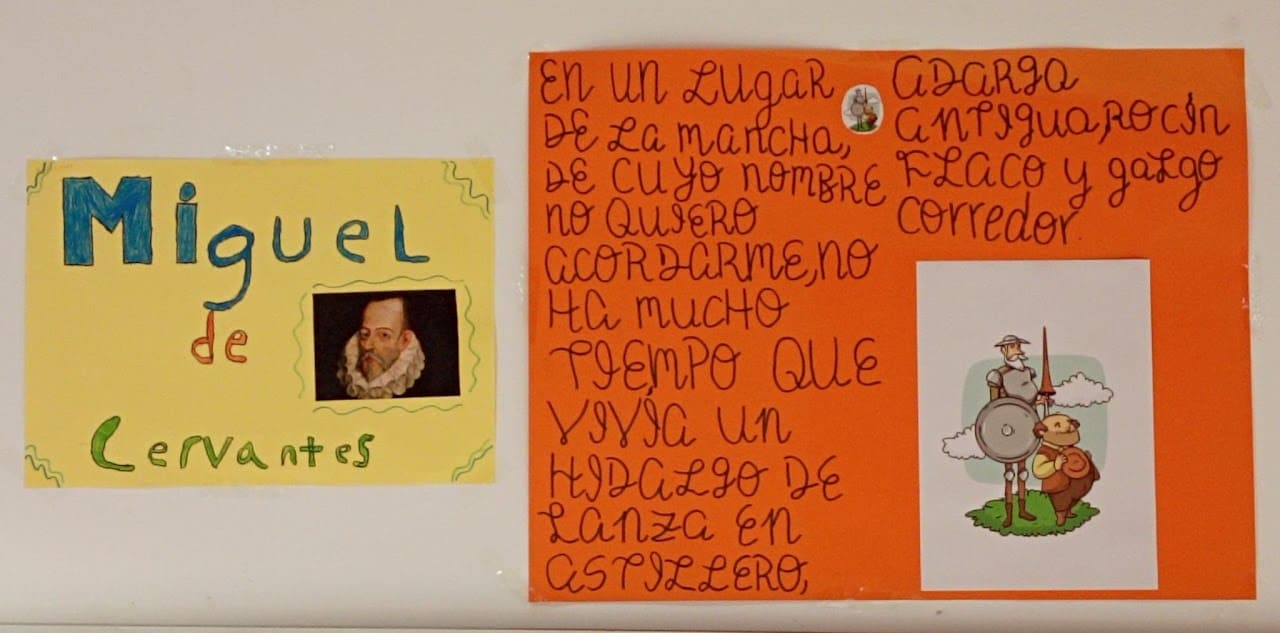 Miguel
de
Cervantes
EN UN LUgaR
DE La mancHa,
DE CUyo nomBRE
no QUIERO
acoRDaRmE, no
Ha mucHo
TIEMPO QUE
VIVÍa Un
HIDaLgo DE
Lanza En
aSTILLERO,
aDaRga
anTIgUa, ROcín
FLaco y gaLgo
corredor.